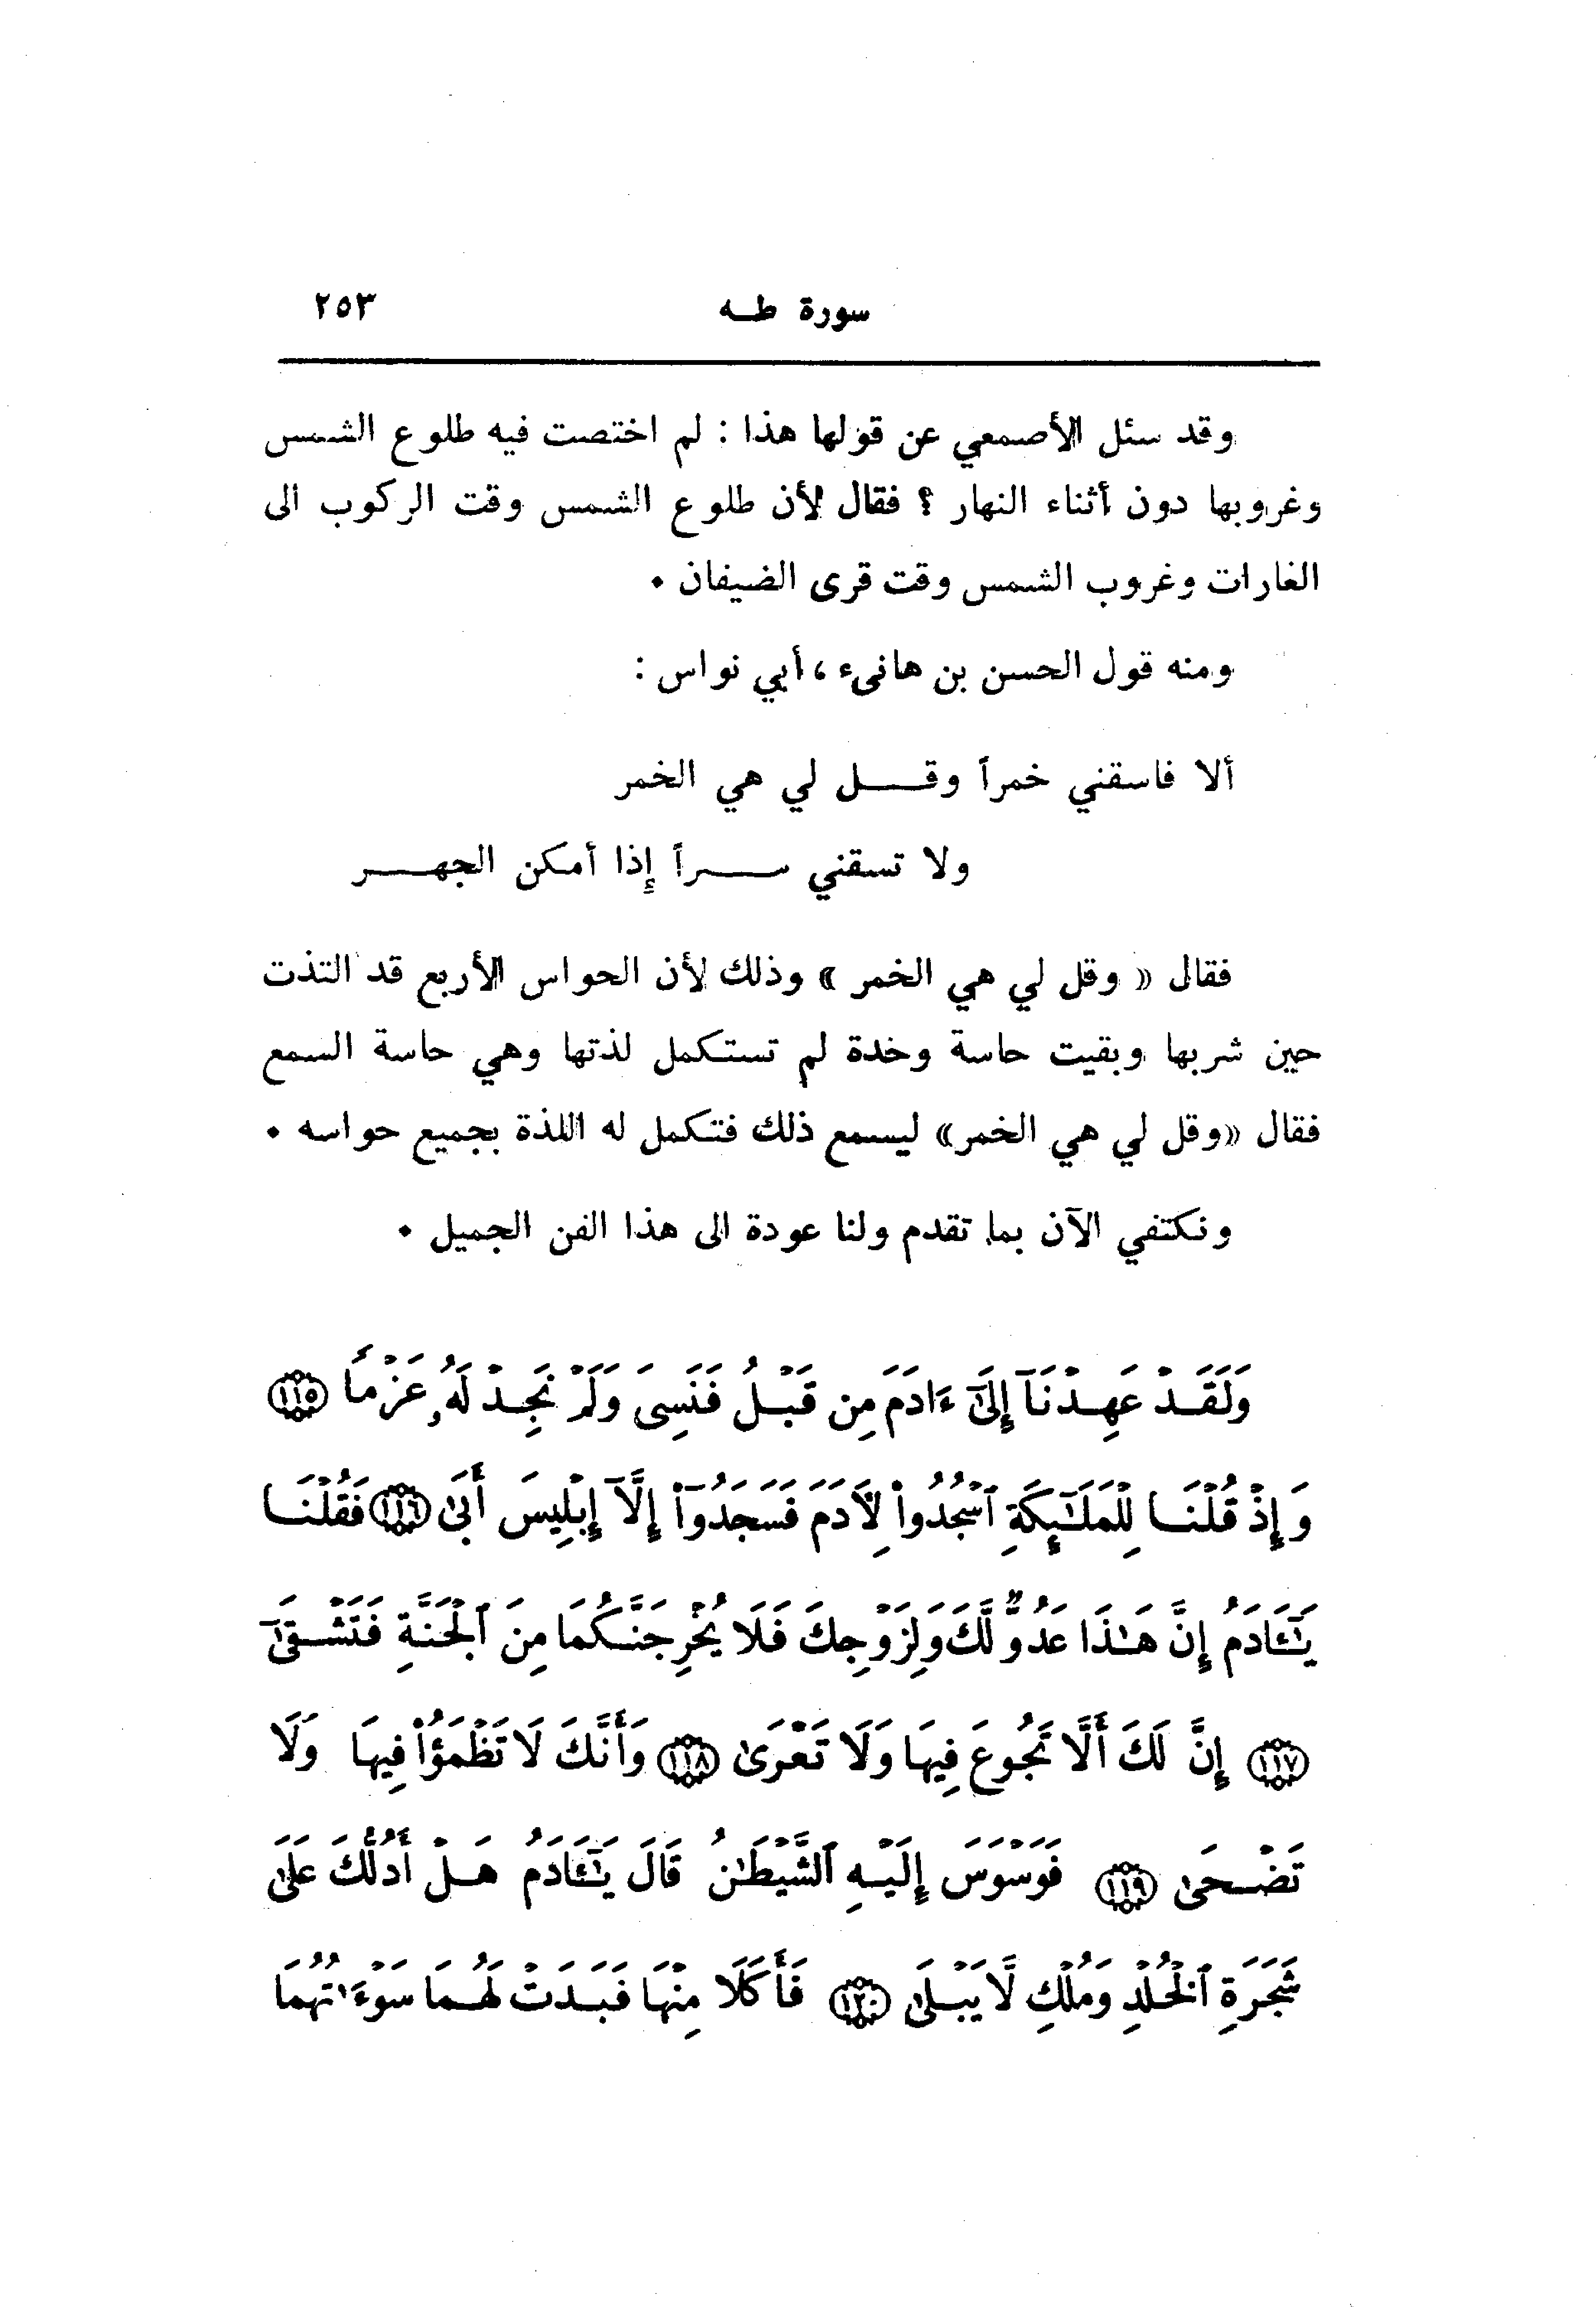 سورة طـه ٢٥٣
وقد سئل الأصمعي عن قولها هذا : لم اختصت فيه طلوع الشمس
وغروبها دون أثناء النهار ؟ فقال لأن طلوع الشمس وقت الركوب الى
الغارات وغروب الشمس وقت قرى الضيفان •
ومنه قول الحسن بن هانىء ، أبي نواس :
ألا فاسقني خمراً وقـــل لي هي الخمر
ولا تسقني ســـراً إذا أمكن الجهـــر
فقال « وقل لي هي الخمر » وذلك لأن الحواس الأربع قد التذت
حين شربها وبقيت حاسة وخدة لم تستكمل لذتها وهي حاسة السمع
فقال «وقل لي هي الخمر» ليسمع ذلك فتكمل له اللذة بجميع حواسه •
ونكتفي الآن بما تقدم ولنا عودة الى هذا الفن الجميل •
وَلَقَدْ عَهِدْنَآ إِلَىٰٓ ءَادَمَ مِن قَبْلُ فَنَسِىَ وَلَمْ نَجِدْ لَهُۥ عَزْمًا ﴿١١٥﴾
وَإِذْ قُلْنَا لِلْمَلَـٰٓئِكَةِ ٱسْجُدُوا۟ لِـَٔادَمَ فَسَجَدُوٓا۟ إِلَّآ إِبْلِيسَ أَبَىٰ ﴿١١٦﴾ فَقُلْنَا
يَـٰٓـَٔادَمُ إِنَّ هَـٰذَا عَدُوٌّ لَّكَ وَلِزَوْجِكَ فَلَا يُخْرِجَنَّكُمَا مِنَ ٱلْجَنَّةِ فَتَشْقَىٰٓ
﴿١١٧﴾ إِنَّ لَكَ أَلَّا تَجُوعَ فِيهَا وَلَا تَعْرَىٰ ﴿١١٨﴾ وَأَنَّكَ لَا تَظْمَؤُا۟ فِيهَا وَلَا
تَضْحَىٰ ﴿١١٩﴾ فَوَسْوَسَ إِلَيْهِ ٱلشَّيْطَـٰنُ قَالَ يَـٰٓـَٔادَمُ هَلْ أَدُلُّكَ عَلَىٰ
شَجَرَةِ ٱلْخُلْدِ وَمُلْكٍ لَّا يَبْلَىٰ ﴿١٢٠﴾ فَأَكَلَا مِنْهَا فَبَدَتْ لَهُمَا سَوْءَٰتُهُمَا